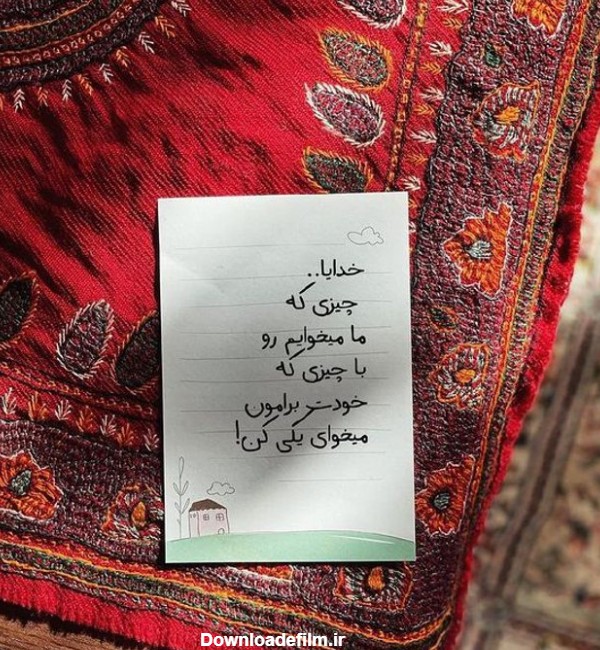 خدایا..
چیزی که
ما میخوایم رو
با چیزی که
خودت برامون
میخوای یکی کن!
Downloadefilm.ir